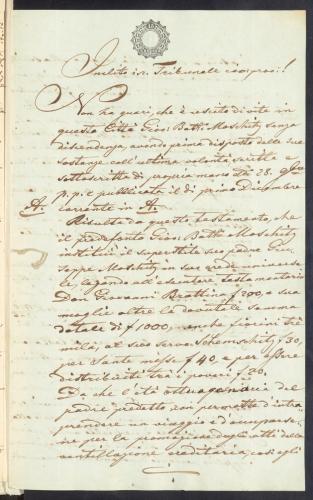 Inclito i: r: Tribunale
Non ha guari, che è cessato di vita in
questa Città Giov: Batt: Moschitz senza
discendenza, avendo prima disposto delle sue
sostanze coll'ultima volontà scritta e
sottoscritta di propria mano dtto 28. 9bre
p. p. e pubblicata il dì primo Dicembre
A. corrente in A.
Risulta da questo testamento, che
il predefonto Giov: Batt: Moschitz
instituì il superstite suo padre Giu-
seppe Moschitz in suo erede universa-
le, legando all'esecutore testamentario
Don Giovanni f 200, a sua
moglie oltre la dovutale somma
dotale di f 1000, anche fiorini tre
mila, al suo servo f 30,
per Sante messe f 40 e per essere
distribuite tra i poveri f 20.
Da che l'età ottuagenaria del
padre predetto non permette d'intra-
prendere un viaggio e d'accompari-
re per la promozione degli atti della
ventillazione ereditaria, così egli